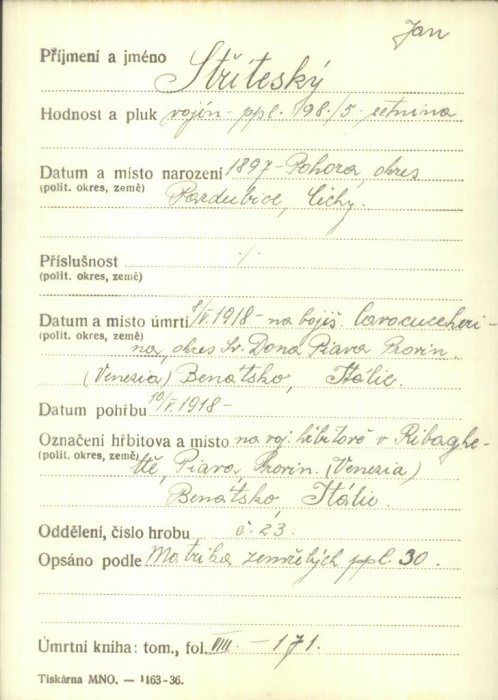 Jan
Příjmení a jméno Stříteský
Hodnost a pluk vojín - ppl. 98./5. setnina
Datum a místo narození 1897 - Pohora, okres
(polit. okres, země) Pardubice, Čechy.
Příslušnost ./.
(polit. okres, země)
Datum a místo úmrtí /V.1918 - na bojiš. Cavocuccheri-
(polit. okres, země) na, okres Sv. Dona Piava Provin.
(Venezia) Benátsko, Itálie.
Datum pohřbu 10/V.1918 -
Označení hřbitova a místo na voj. hřbitově v Ribaghe-
(polit. okres, země) ttě, Piava, Provin. (Venezia)
Benátsko, Itálie.
Oddělení, číslo hrobu č. 23.
Opsáno podle Matrika zemřelých ppl. 30.
Úmrtní kniha: tom., fol. VIII. - 171.
Tiskárna MNO. — 1163-36.